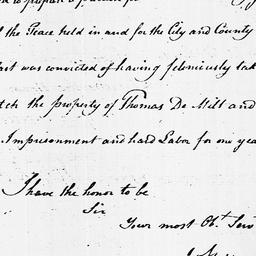 to prepare a pardon for
the Peace held in and for the City and County
last was convicted of having feloniously tak
tch the property of Thomas De Milt and
Imprisonment and hard Labor for one yea
I have the honor to be
Sir
Your most Obt Serv